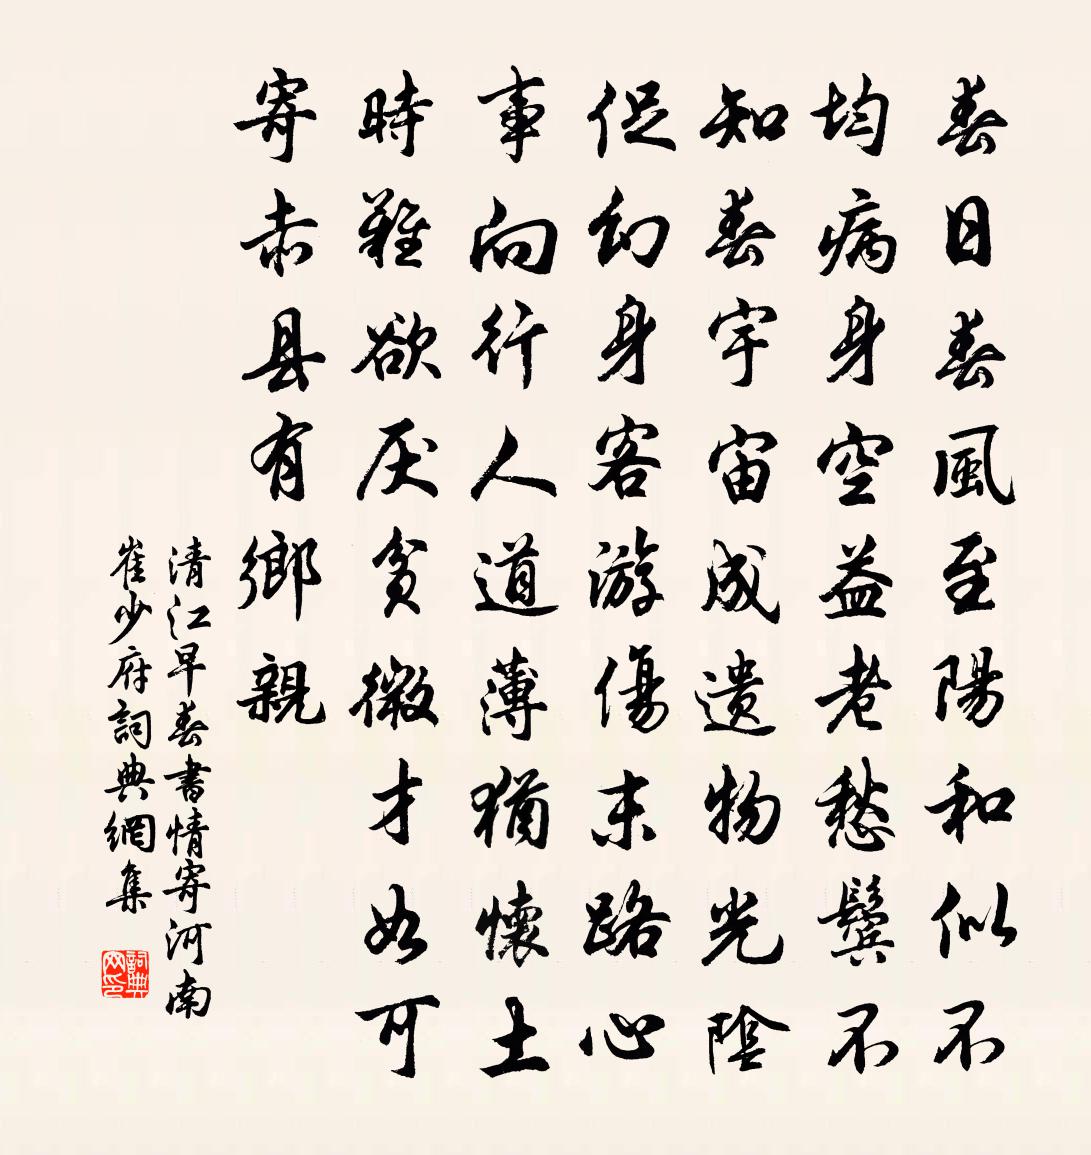 春日春風至陽和似不
均病身空益老愁鬢不
知春宇宙成遺物光陰
促幻身客游傷末路心
事向行人道薄猶懷土
時難欲厌貧微才如可
寄赤县有鄉親
清江早春書情寄河南
崔少府詞典網集
詞典网印